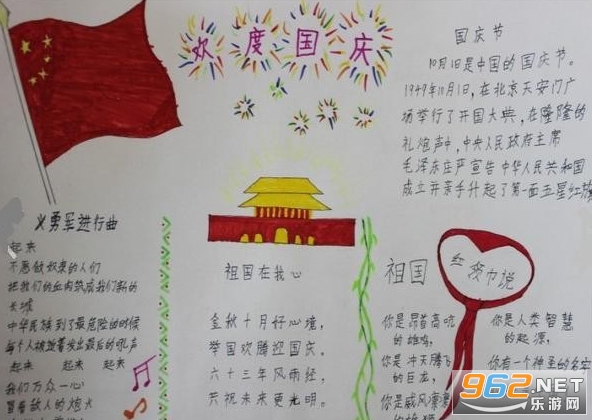 欢度国庆
国庆节
10月1日是中国的国庆节。
1949年10月1日,在北京天安门广
场举行了开国大典,在隆隆的
礼炮声中,中央人民政府主席
毛泽东庄严宣告中华人民共和国
成立并亲手升起了第一面五星红旗
义勇军进行曲
起来
不愿做奴隶的人们
把我们的血肉筑成我们新的
长城
中华民族到了最危险的时候
每个人被迫着发出最后的吼声
起来 起来 起来
我们万众一心
冒着敌人的炮火
祖国在我心
金秋十月好心境,
举国欢腾迎国庆。
六十三年风雨轻,
共祝未来更光明。
祖国
你是昂首高吭
的雄鸡,
你是冲天腾飞
的巨龙,
你是威风凛凛
红领巾说
你是人类智慧
的起源,
你有一个神圣的名字
962.NET
乐游网